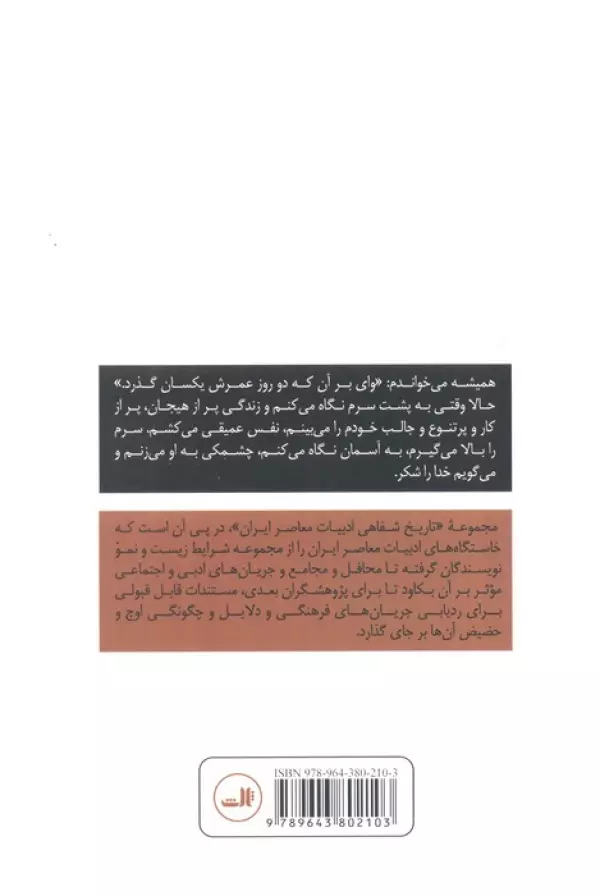 همیشه می‌خواندم: «وای بر آن که دو روز عمرش یکسان گذرد.»
حالا وقتی به پشت سرم نگاه می‌کنم و زندگی پر از هیجان، پر از
کار و پرتنوع و جالب خودم را می‌بینم، نفس عمیقی می‌کشم. سرم
را بالا می‌گیرم، به آسمان نگاه می‌کنم، چشمکی به او می‌زنم و
می‌گویم خدا را شکر.
مجموعهٔ «تاریخ شفاهی ادبیات معاصر ایران»، در پی آن است که
خاستگاه‌های ادبیات معاصر ایران را از مجموعه شرایط زیست و نموّ
نویسندگان گرفته تا محافل و مجامع و جریان‌های ادبی و اجتماعی
مؤثر بر آن بکاود تا برای پژوهشگران بعدی، مستندات قابل قبولی
برای ردیابی جریان‌های فرهنگی و دلایل و چگونگی اوج و
حضیض آن‌ها بر جای گذارد.
ISBN 978-964-380-210-3
ثالث
9 789643 802103